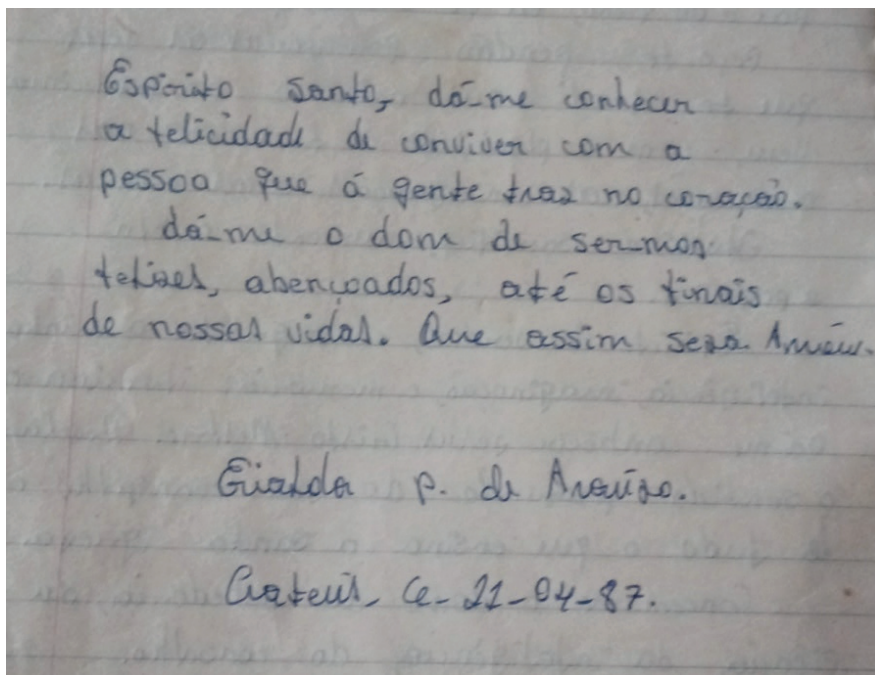 Espírito Santo, dá-me conhecer
a felicidade de conviver com a
pessoa que á gente traz no coração.
dá-me o dom de sermos
felizes, abençoados, até os finais
de nossas vidas. Que assim seja Amém.
P. de Araújo.
Crateús, Ce- 21-04-87.